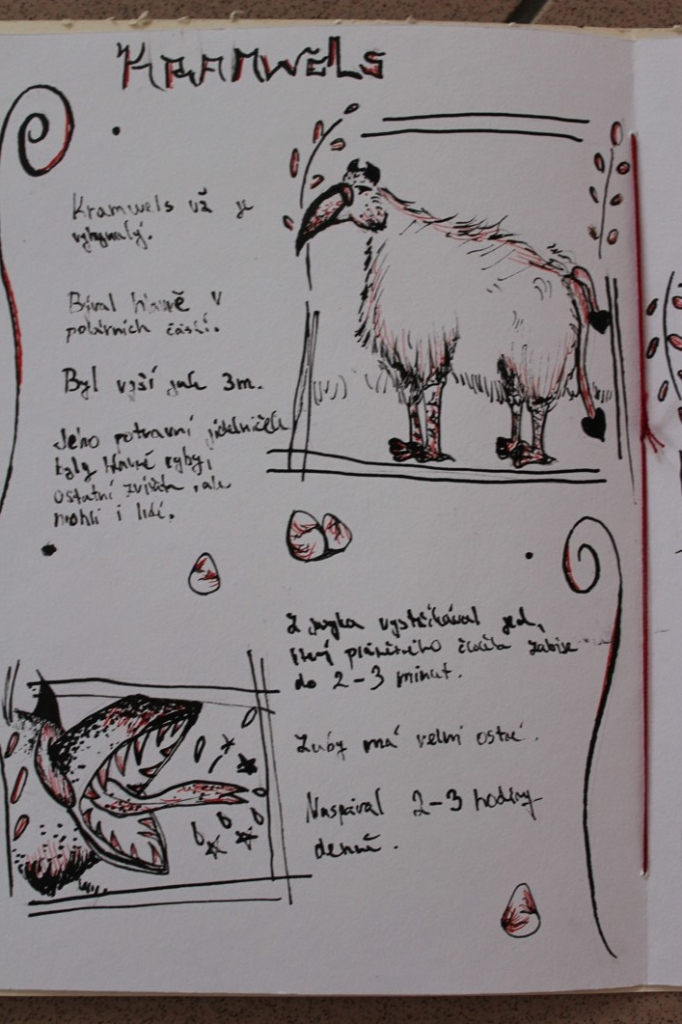 Kramwels
Kramwels už je
vyhynulý.
Býval hlavně v
polárních části.
Byl vyší jak 3m.
Jeho potravní jídelníček
byly hlavně ryby,
ostatní zvířata, ale
mohli i lidi.
Z jazyka vystřikával jed,
který zabije
do 2-3 minut.
Zuby má velmi ostré.
Naspával 2-3 hodiny
denně.